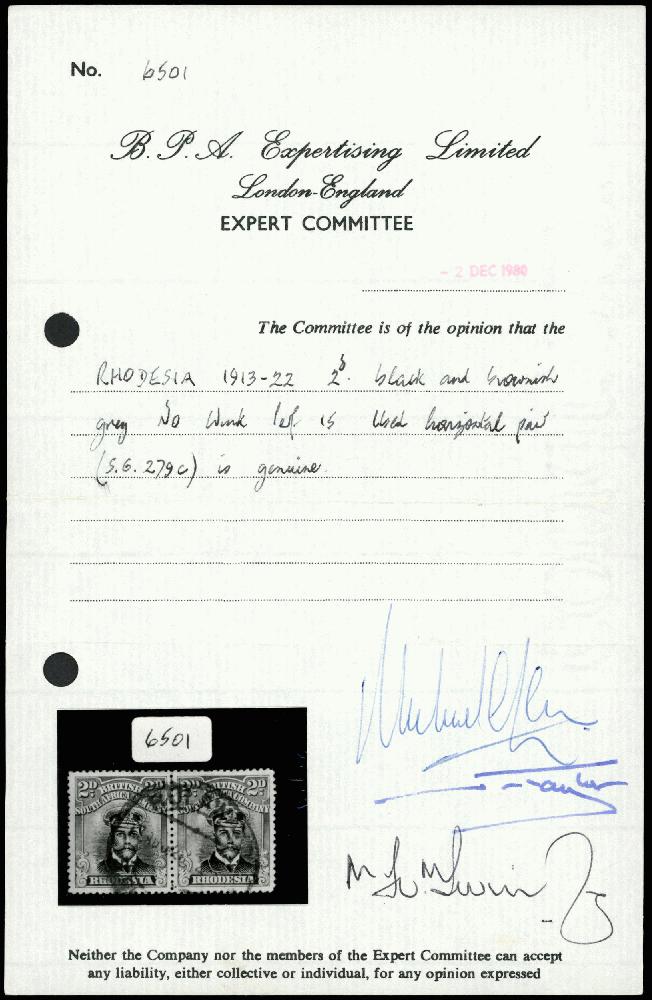 No. 6501
B. P. A. Expertising Limited
London-England
EXPERT COMMITTEE
- 2 DEC 1980
The Committee is of the opinion that the
RHODESIA 1913-22 2d. black and brownish
grey No Wmk Perf 15 Used horizontal pair
(S.G. 279c) is genuine.
6501
2D BRITISH 2D 2D BRITISH 2D
SOUTH AFRICA COMPANY
RHODESIA RHODESIA
Neither the Company nor the members of the Expert Committee can accept
any liability, either collective or individual, for any opinion expressed